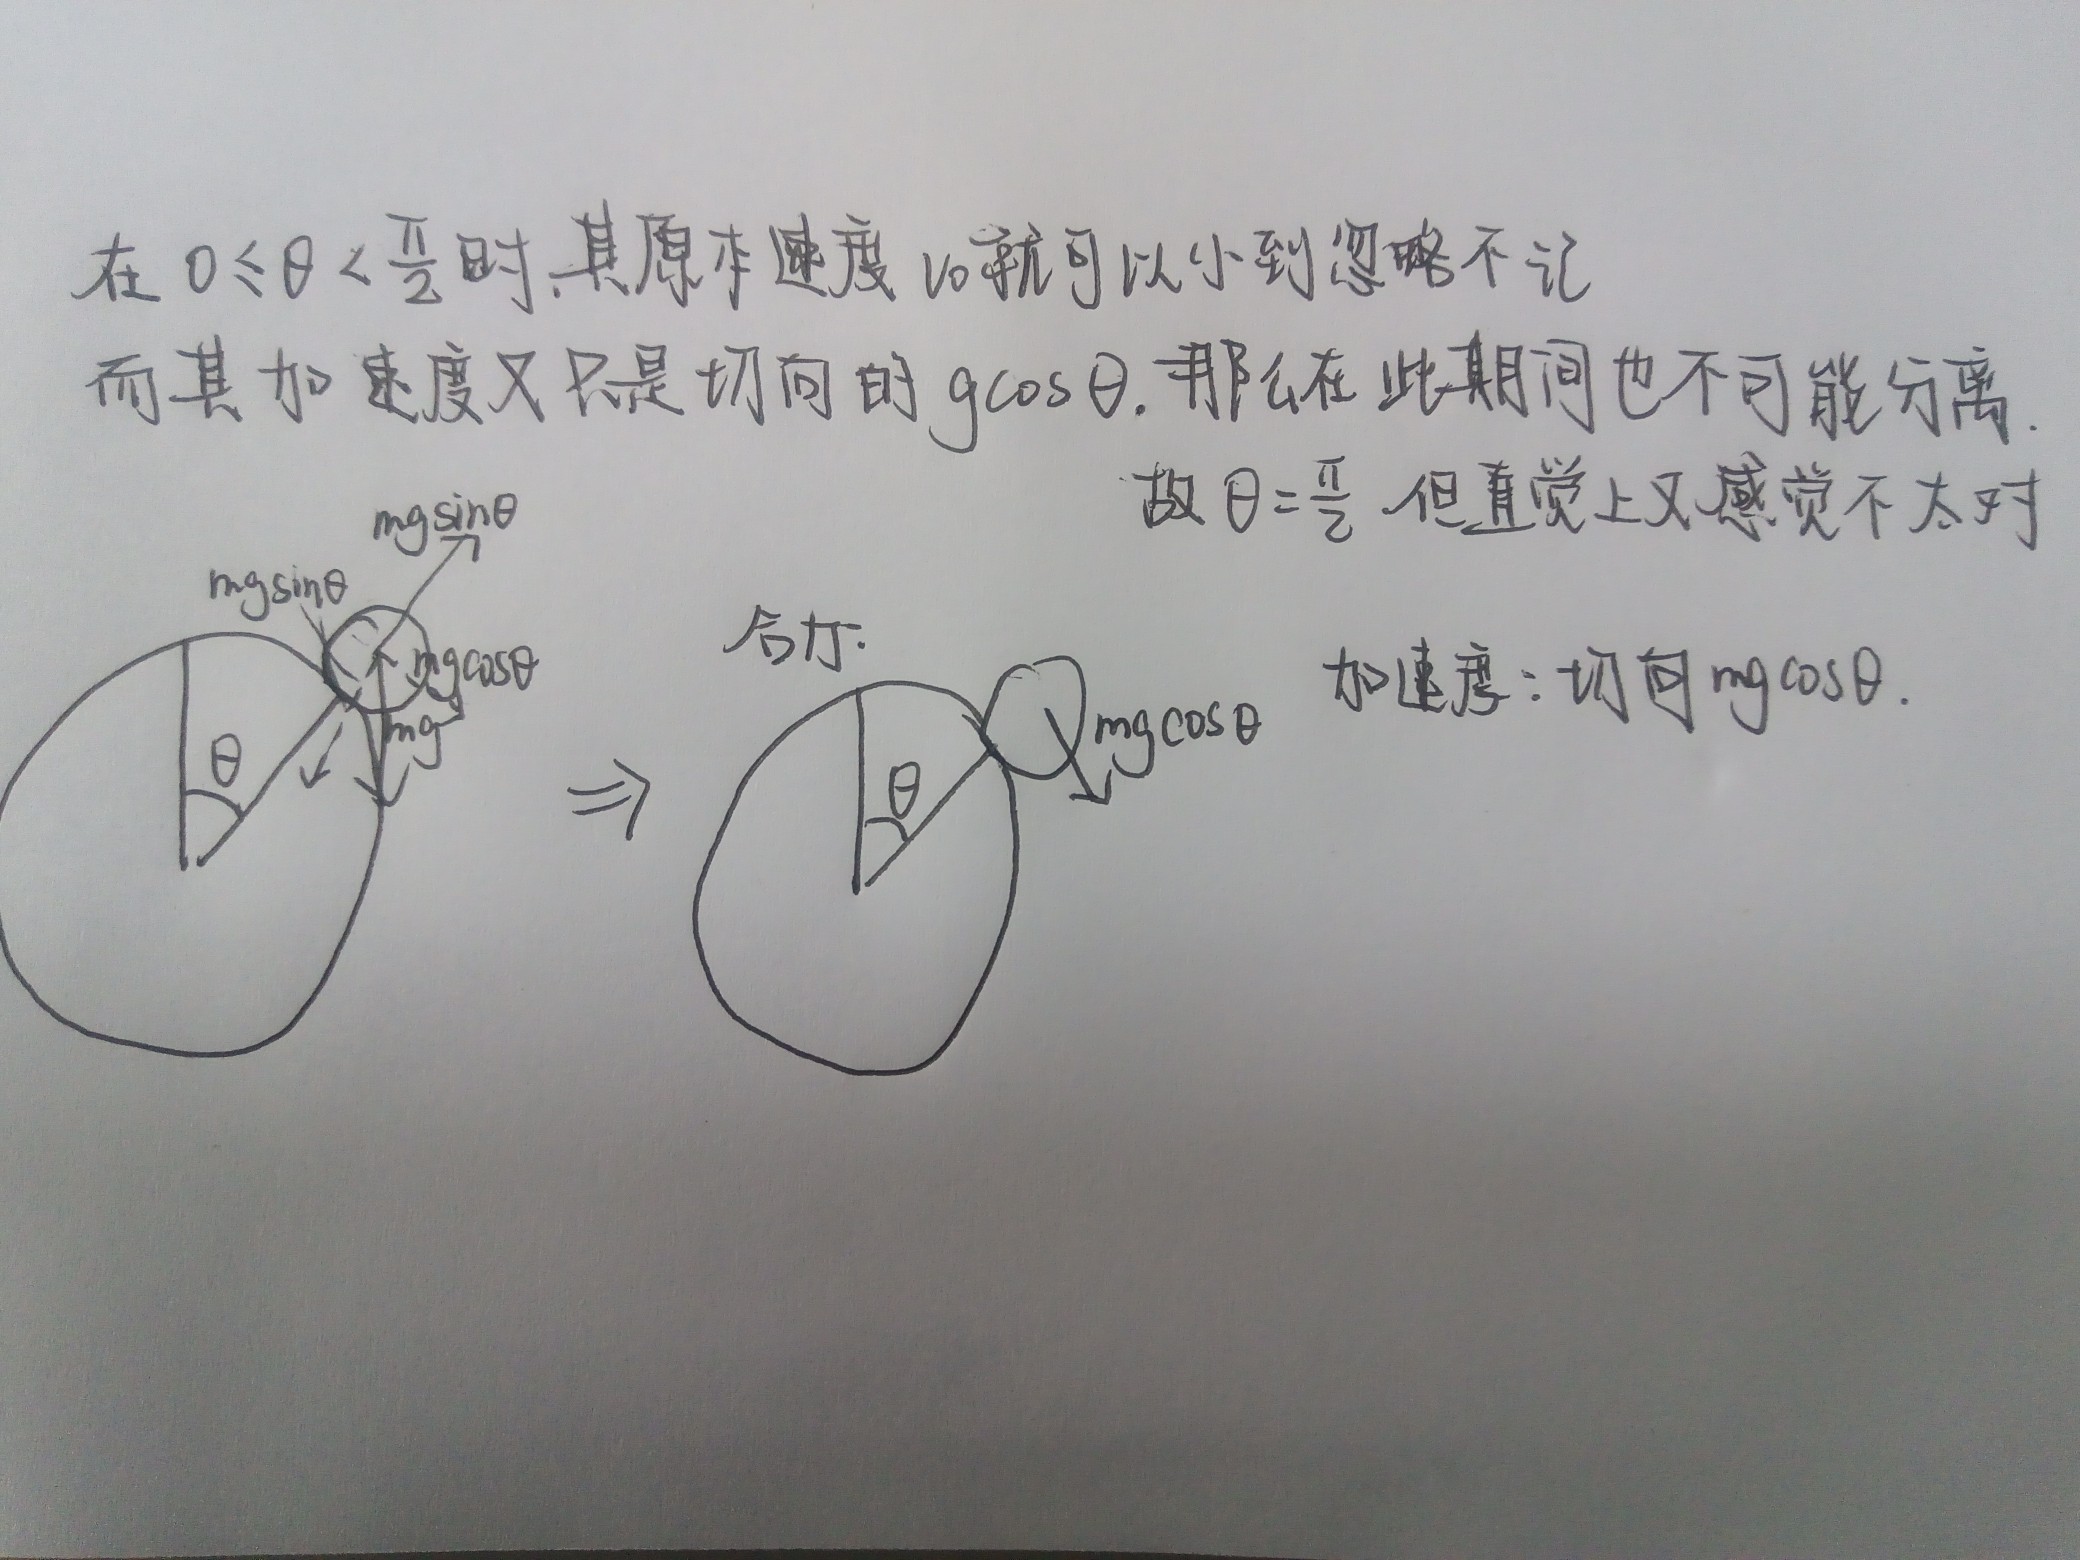 在 0≤θ<π/2时,其原本速度 v₀就可以小到忽略不记
而其加速度又只是切向的gcosθ.那么在此期间也不可能分离.
故θ=π/2 但直觉上又感觉不太对
mgsinθ
mgsinθ
mgcosθ
mg
θ
⇒
合力:
mgcosθ
θ
加速度:切向mgcosθ.